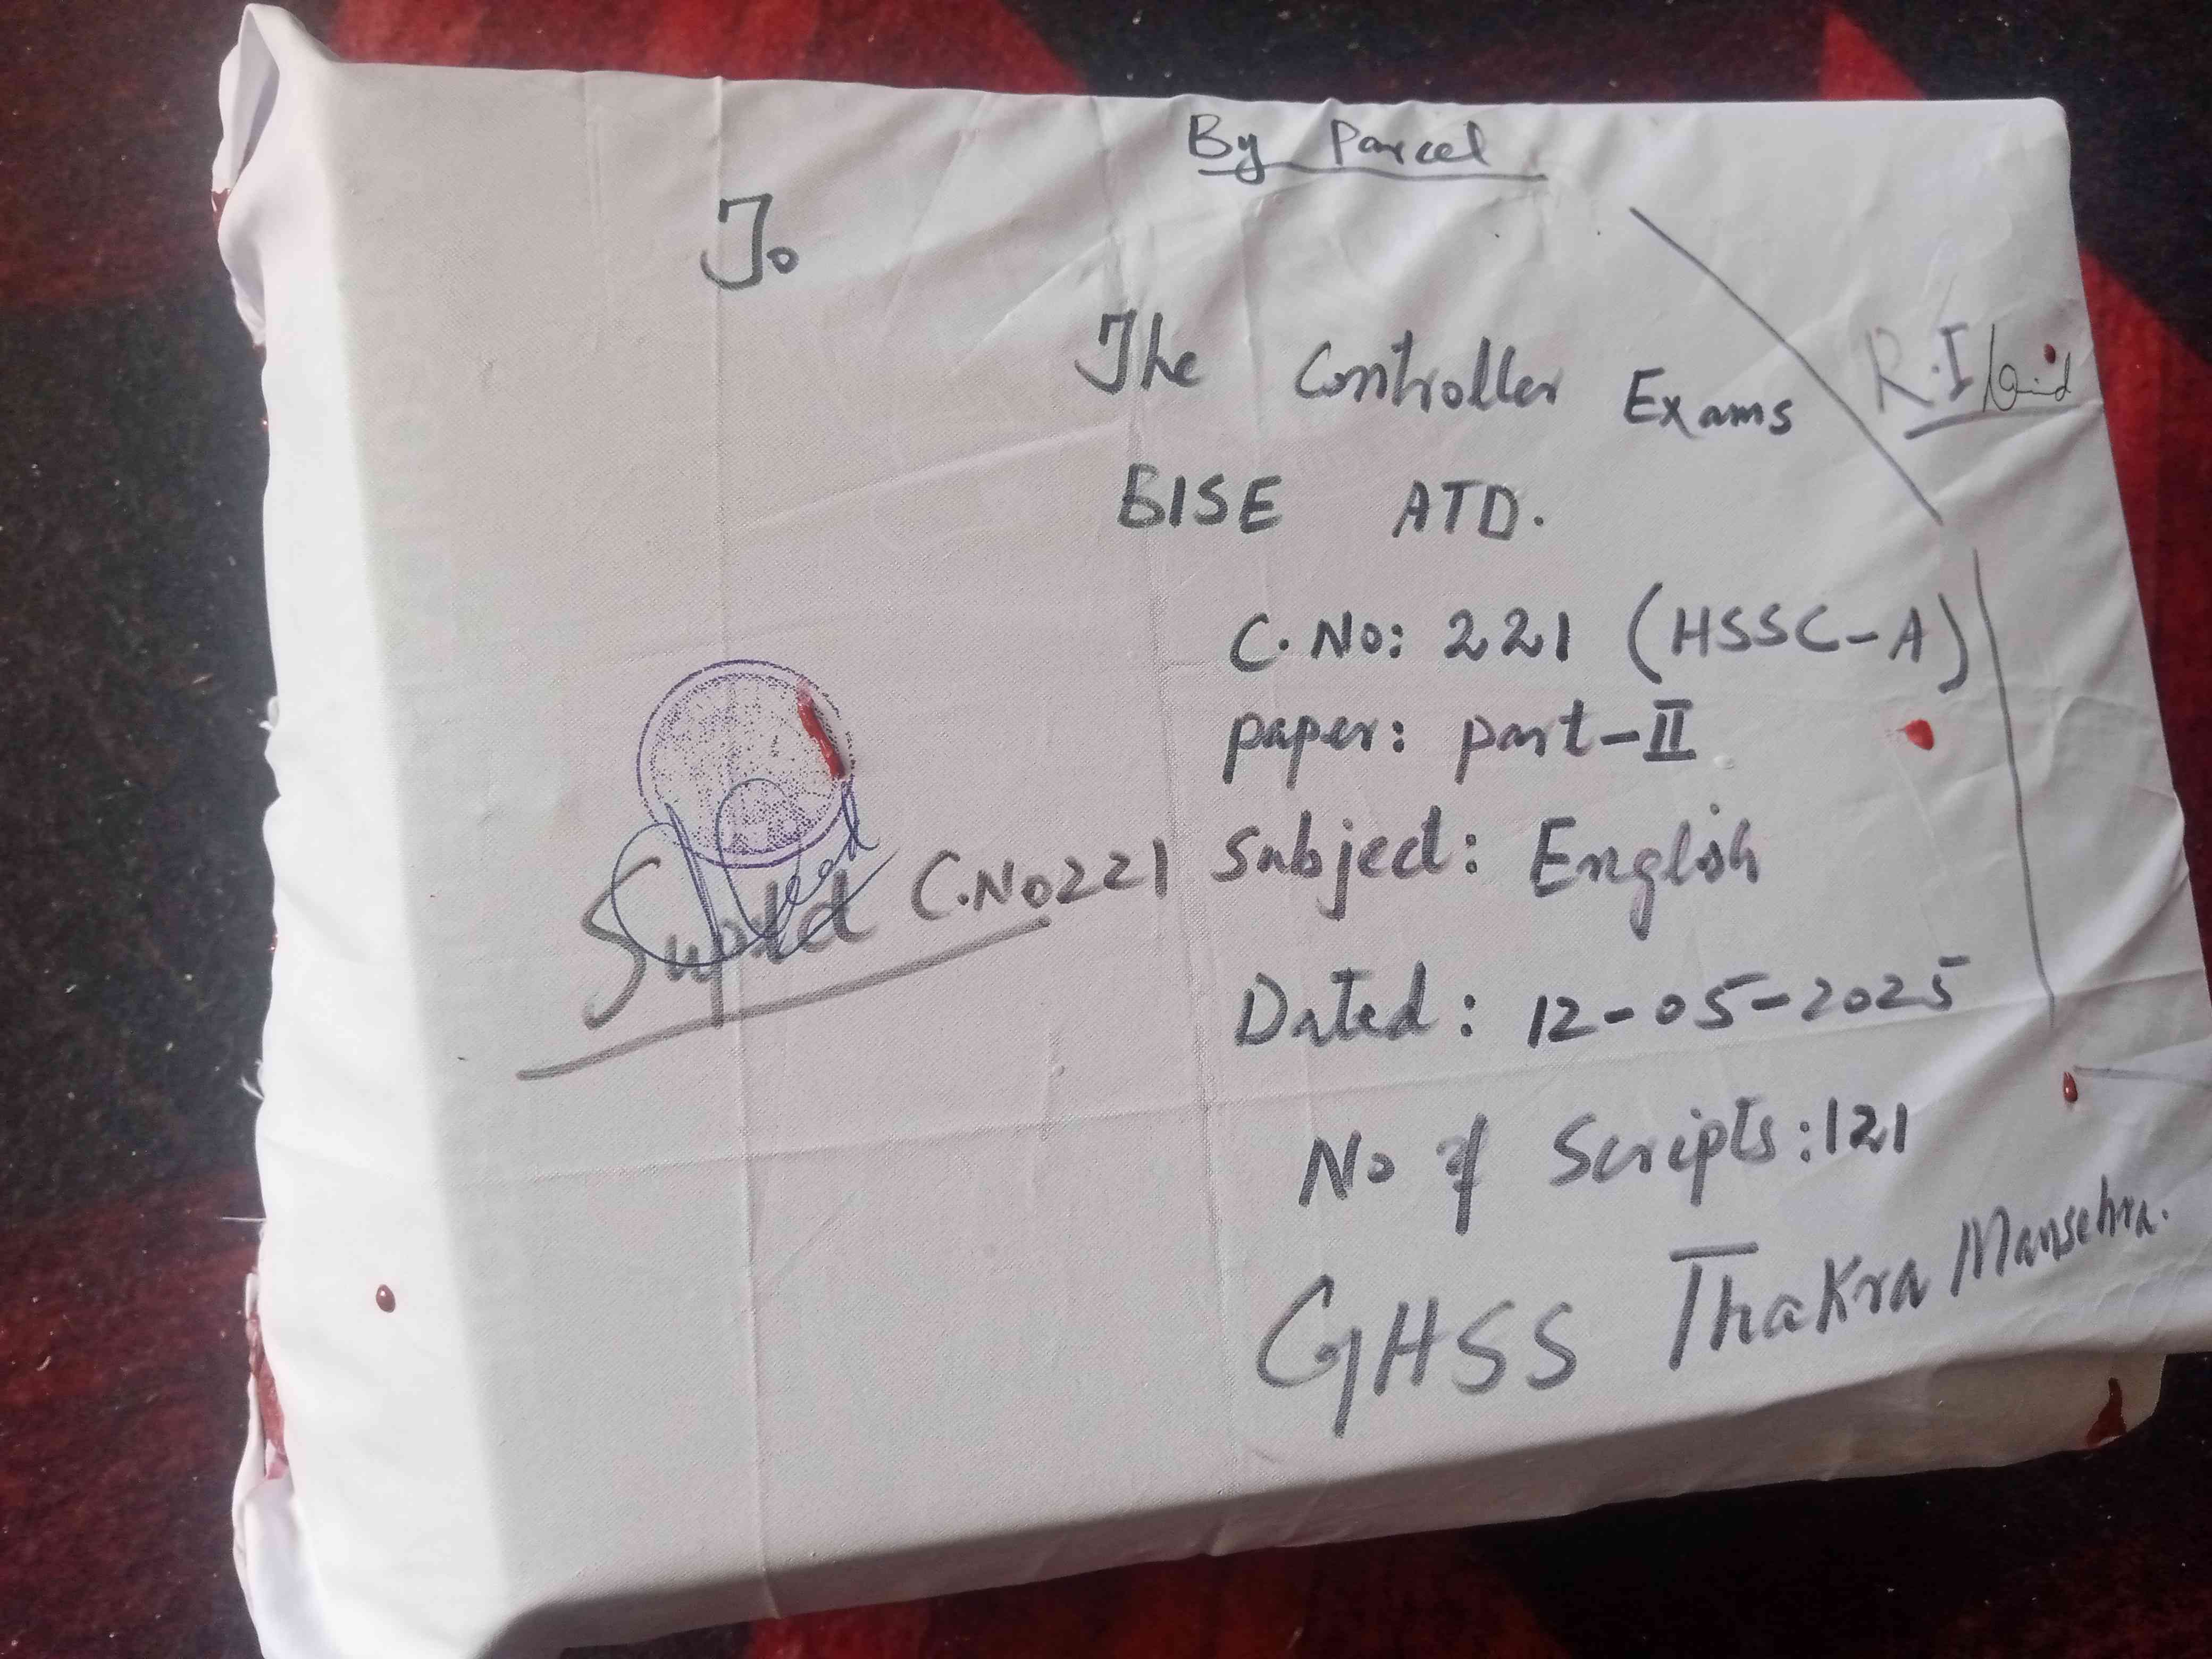 By Parcel
To
The Controller Exams
R.I
BISE ATD.
C.No: 221 (HSSC-A)
paper: part-II
Subject: English
Suptd C.No 221
Dated: 12-05-2025
No of Scripts: 121
GHSS Thakra Mansehra.